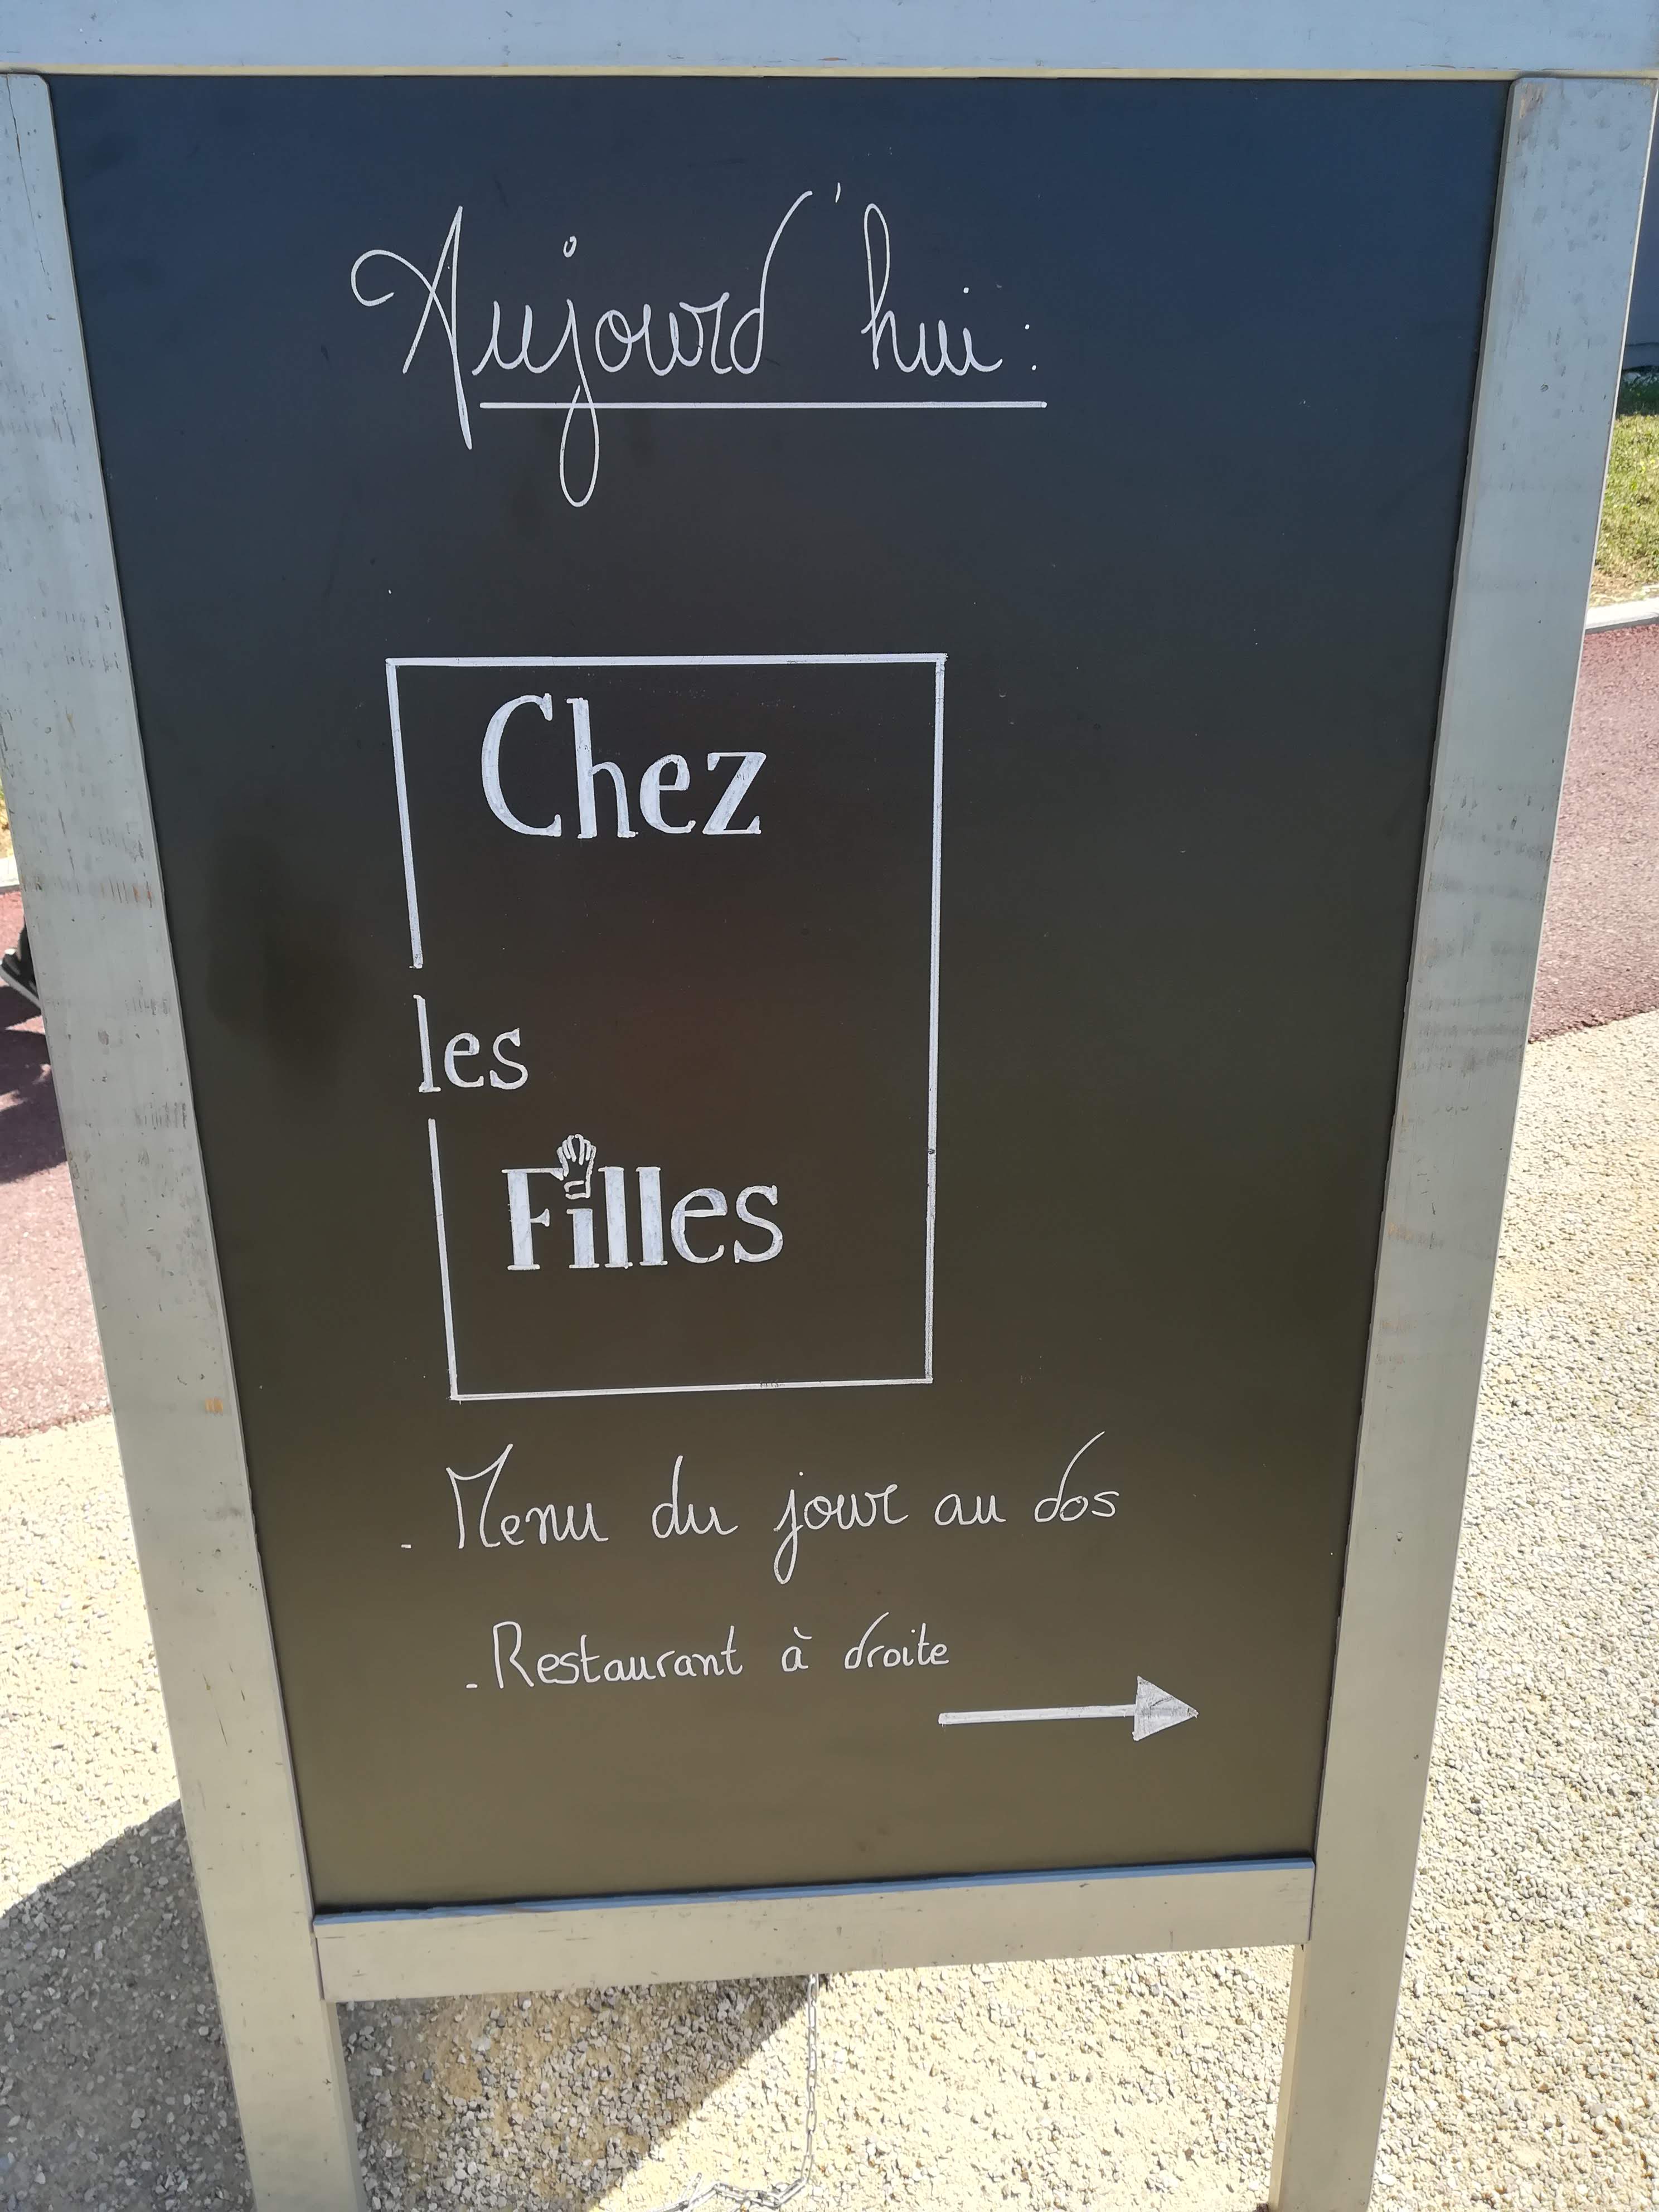 Aujourd'hui :
Chez
les
Filles
- Menu du jour au dos
- Restaurant à droite